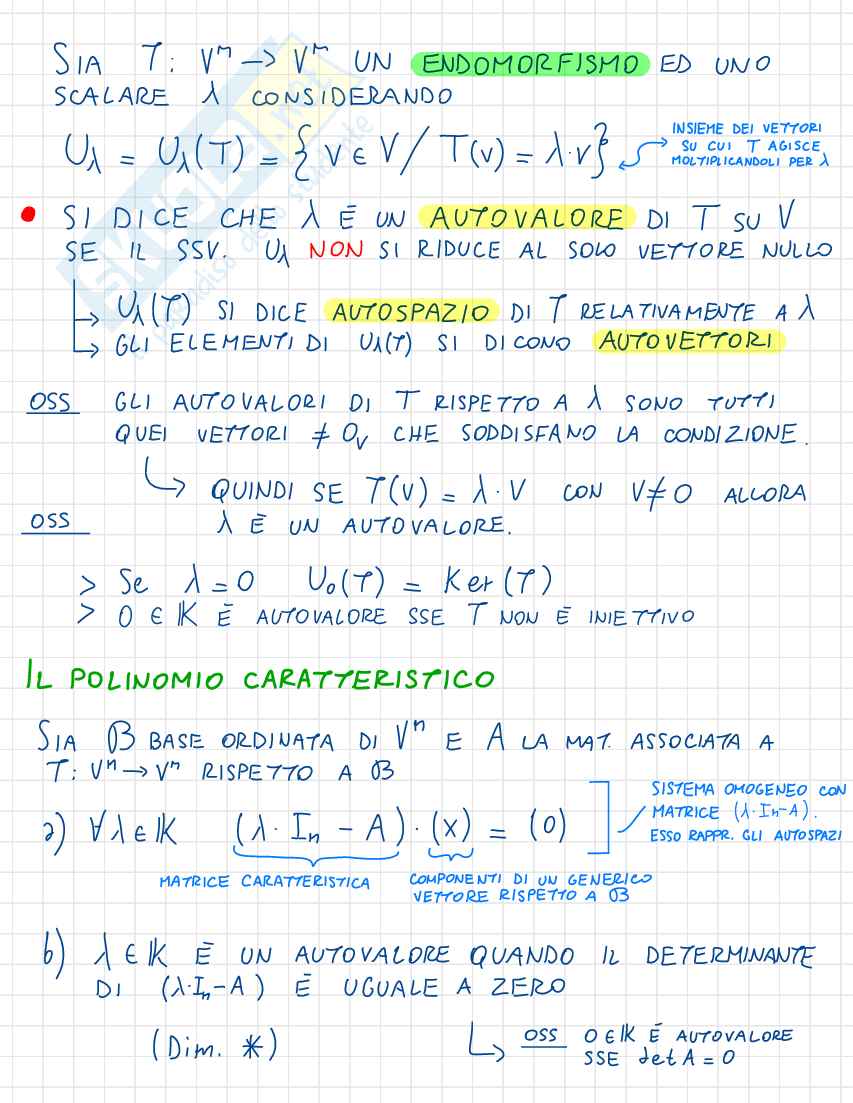 SIA T: Vⁿ → Vⁿ UN ENDOMORFISMO ED UNO
SCALARE λ CONSIDERANDO
Uλ = Uλ(T) = {V ∈ V / T(v) = λ·v}
INSIEME DEI VETTORI
SU CUI T AGISCE
MOLTIPLICANDOLI PER λ
• SI DICE CHE λ È UN AUTOVALORE DI T SU V
SE IL SSV. Uλ NON SI RIDUCE AL SOLO VETTORE NULLO
↳ Uλ(T) SI DICE AUTOSPAZIO DI T RELATIVAMENTE A λ
↳ GLI ELEMENTI DI Uλ(T) SI DICONO AUTOVETTORI
OSS GLI AUTOVALORI DI T RISPETTO A λ SONO TUTTI
QUEI VETTORI ≠ 0ᵥ CHE SODDISFANO LA CONDIZIONE.
↳ QUINDI SE T(V) = λ·V CON V≠0 ALLORA
λ È UN AUTOVALORE.
OSS
> Se λ=0 U₀(T) = Ker(T)
> 0 ∈ 𝕂 È AUTOVALORE SSE T NON È INIETTIVO
IL POLINOMIO CARATTERISTICO
SIA B BASE ORDINATA DI Vⁿ E A LA MAT. ASSOCIATA A
T: Vⁿ → Vⁿ RISPETTO A B
a) ∀λ∈𝕂 (λ·Iₙ - A)·(X) = (0)
SISTEMA OMOGENEO CON
MATRICE (λ·Iₙ-A).
ESSO RAPPR. GLI AUTOSPAZI
MATRICE CARATTERISTICA
COMPONENTI DI UN GENERICO
VETTORE RISPETTO A B
b) λ∈𝕂 È UN AUTOVALORE QUANDO IL DETERMINANTE
DI (λ·Iₙ-A) È UGUALE A ZERO
(Dim. *)
↳ OSS 0∈𝕂 È AUTOVALORE
SSE det A = 0
SKUOLA.net
il paradiso dello studente